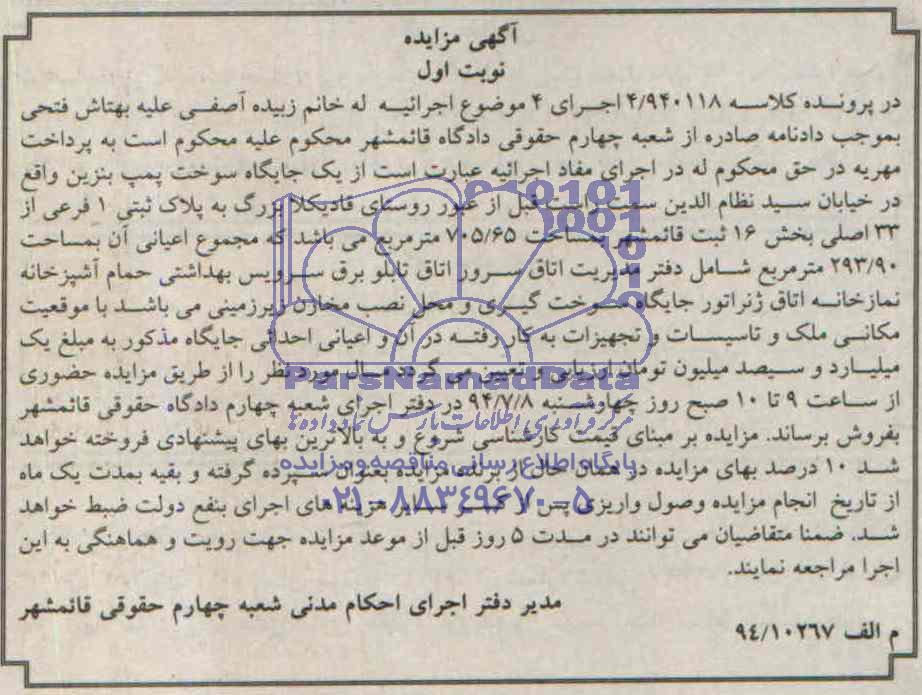 آگهی مزایده
نوبت اول
در پرونده کلاسه ۴/۹۴۰۱۱۸ اجرای ۴ موضوع اجرائیه له خانم زبیده آصفی علیه بهتاش فتحی
بموجب دادنامه صادره از شعبه چهارم حقوقی دادگاه قائمشهر محکوم علیه محکوم است به پرداخت
مهریه در حق محکوم له در اجرای مفاد اجرائیه عبارت است از یک جایگاه سوخت پمپ بنزین واقع
در خیابان سید نظام الدین سمت راست قبل از عبور روستای قادیکلا بزرگ به پلاک ثبتی ۱ فرعی از
۳۳ اصلی بخش ۱۶ ثبت قائمشهر بمساحت ۷۰۵/۶۵ مترمربع می باشد که مجموع اعیانی آن بمساحت
۲۹۳/۹۰ مترمربع شامل دفتر مدیریت اتاق سرور اتاق تابلو برق سرویس بهداشتی حمام آشپزخانه
نمازخانه اتاق ژنراتور جایگاه سوخت گیری و محل نصب مخازن زیرزمینی می باشد با موقعیت
مکانی ملک و تاسیسات و تجهیزات به کار رفته در آن و اعیانی احداثی جایگاه مذکور به مبلغ یک
میلیارد و سیصد میلیون تومان ارزیابی و تعیین می گردد مال مورد نظر را از طریق مزایده حضوری
از ساعت ۹ تا ۱۰ صبح روز چهارشنبه ۹۴/۷/۸ در دفتر اجرای شعبه چهارم دادگاه حقوقی قائمشهر
بفروش برساند. مزایده بر مبنای قیمت کارشناسی شروع و به بالاترین بهای پیشنهادی فروخته خواهد
شد ۱۰ درصد بهای مزایده در همان حال از برنده مزایده بعنوان سپرده گرفته و بقیه بمدت یک ماه
از تاریخ انجام مزایده وصول واریزی پس از کسر سایر هزینه های اجرای بنفع دولت ضبط خواهد
شد. ضمنا متقاضیان می توانند در مدت ۵ روز قبل از موعد مزایده جهت رویت و هماهنگی به این
اجرا مراجعه نمایند.
مدیر دفتر اجرای احکام مدنی شعبه چهارم حقوقی قائمشهر
م الف ۹٤/۱۰۲٦۷
ParsNamadData
مرکز فرآوری اطلاعات پارس نماد داده ها
پایگاه اطلاع رسانی مناقصه و مزایده
۰۲۱-۸۸۳٤۹٦۷۰-۵